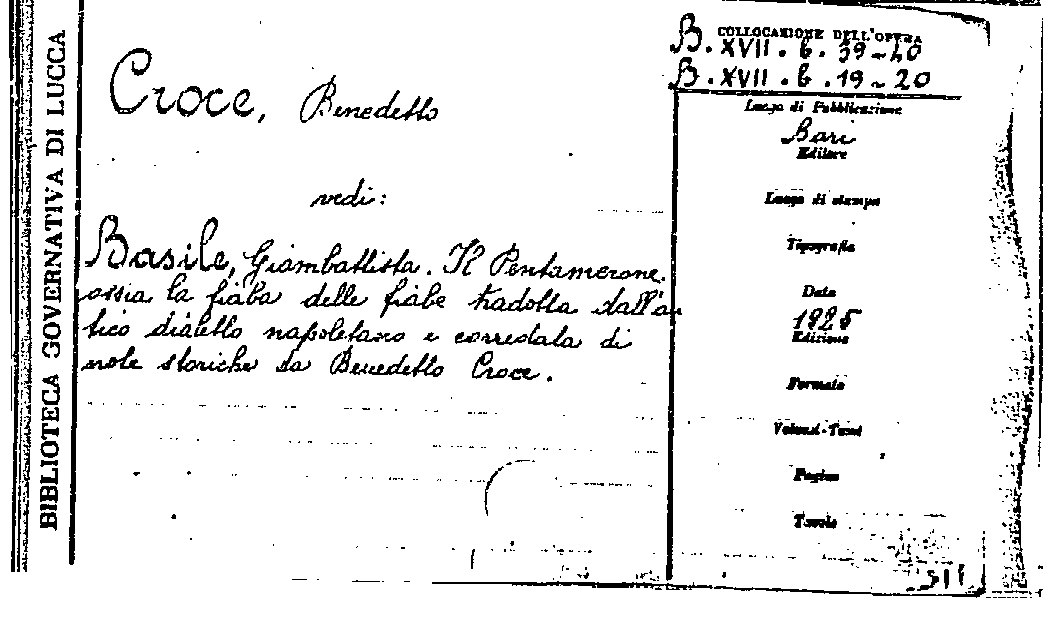 BIBLIOTECA GOVERNATIVA DI LUCCA
Croce, Benedetto
vedi:
Basile, Giambattista. Il Pentamerone.
ossia la fiaba delle fiabe tradotta dall'an
tico dialetto napoletano e corredata di
note storiche da Benedetto Croce.
COLLOCAZIONE DELL'OPERA
B. XVII. b. 39-40
B. XVII. b. 19-20
Luogo di Pubblicazione
Bari
Editore
Luogo di stampa
Tipografia
Data
1925
Edizione
Formato
Volumi-Tomi
Pagine
Tavole